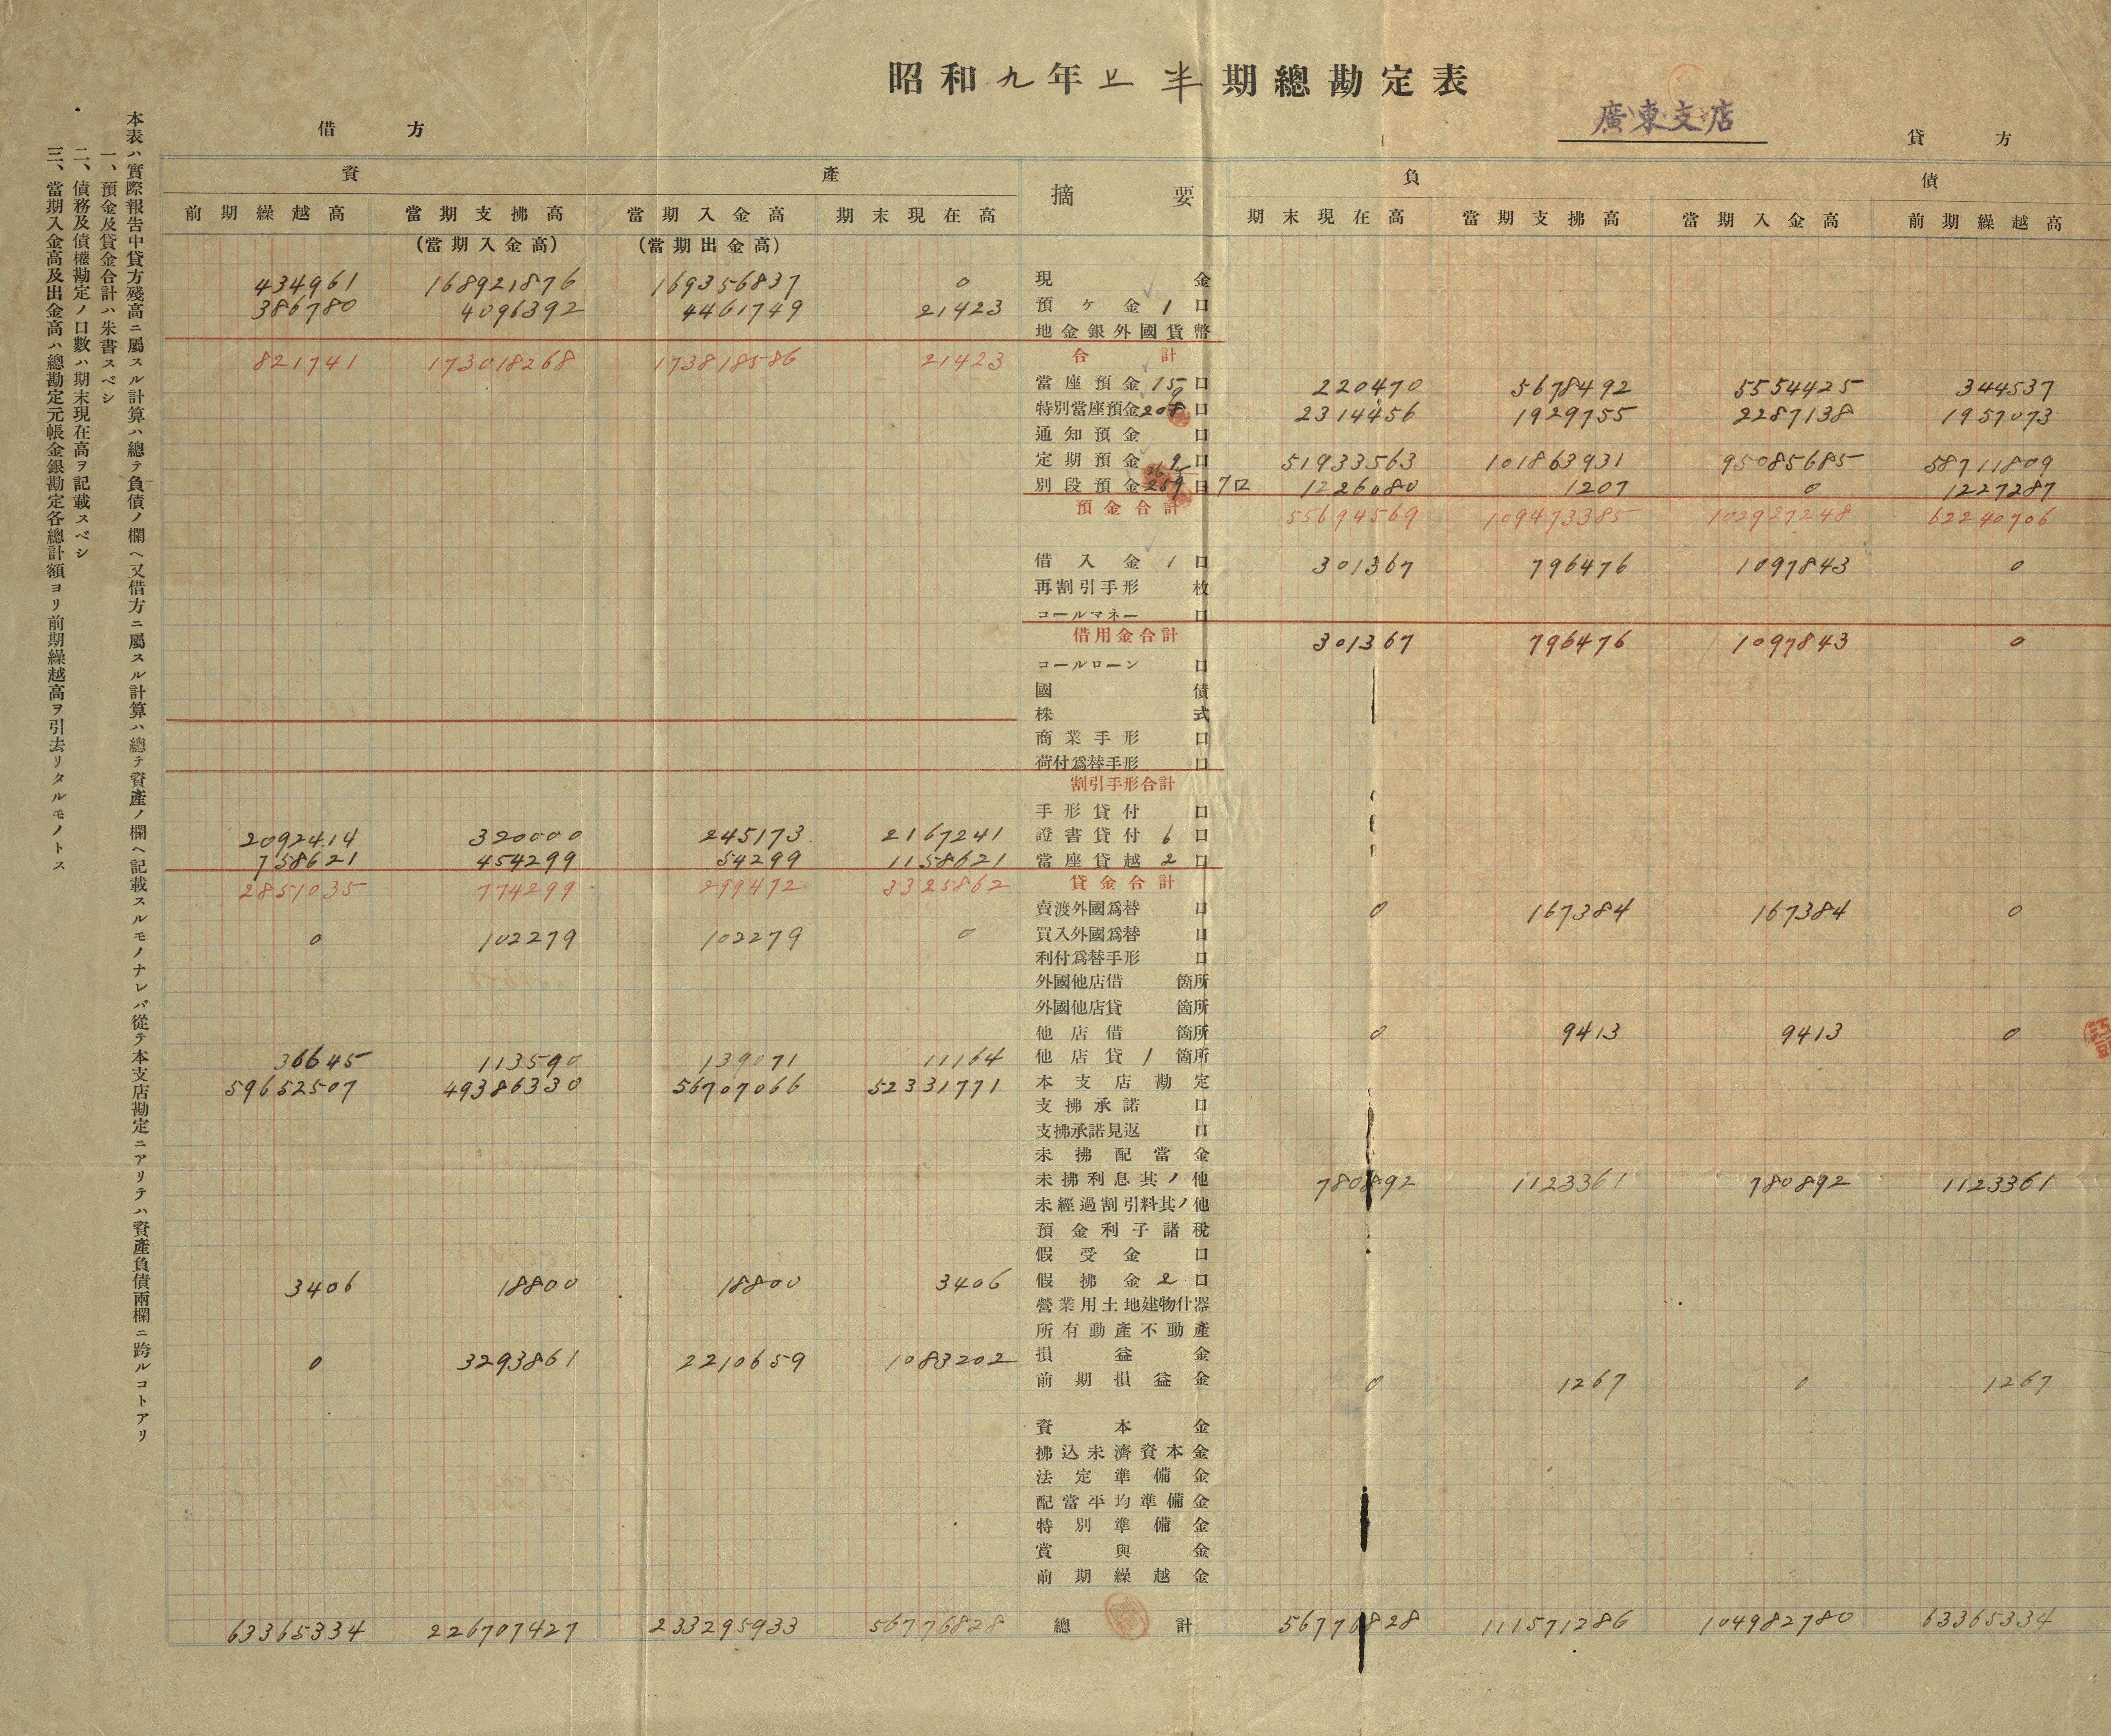 昭和九年上半期總勘定表
廣東支店
借方
貸方
資產
摘要
負債
前期繰越高 當期支拂高 當期入金高 期末現在高 期末現在高 當期支拂高 當期入金高 前期繰越高
(當期入金高) (當期出金高)
434961 168921876 169356837 0 現金
386780 4096392 4461749 21423 預ケ金 1 口
地金銀外國貨幣
821741 173018268 173818586 21423 合計
當座預金 15 口 220470 5678492 5554425 344537
特別當座預金 208 口 2314456 1929755 2287138 1957073
通知預金 口
定期預金 口 51933563 101863931 95085685 58711809
別段預金 259 口 7口 1226080 1207 0 1227287
預金合計 55694569 109473385 102927248 62240706
借入金 1 口 301367 796476 1097843 0
再割引手形 枚
コールマネー 口
借用金合計 301367 796476 1097843 0
コールローン 口
國債
株式
商業手形 口
荷付爲替手形 口
割引手形合計
手形貸付 口
2092414 320000 245173 2167241 證書貸付 6 口
758621 454299 54299 1158621 當座貸越 2 口
2851035 774299 299472 3325862 貸金合計
賣渡外國爲替 口 0 167384 167384 0
0 102279 102279 0 買入外國爲替 口
利付爲替手形 口
外國他店借 箇所
外國他店貸 箇所
他店借 箇所 0 9413 9413 0
36645 113590 139071 11164 他店貸 1 箇所
59652507 49386330 56707066 52331771 本支店勘定
支拂承諾 口
支拂承諾見返 口
未拂配當金
未拂利息其ノ他 780892 1123361 780892 1123361
未經過割引料其ノ他
預金利子諸稅
假受金 口
3406 18800 18800 3406 假拂金 2 口
營業用土地建物什器
所有動產不動產
0 3293861 2210659 1083202 損益金
前期損益金 0 1267 0 1267
資本金
拂込未濟資本金
法定準備金
配當平均準備金
特別準備金
賞與金
前期繰越金
63365334 226707427 233295933 56776828 總計 56776828 111571286 104982780 63365334
本表ハ實際報告中貸方殘高ニ屬スル計算ハ總テ負債ノ欄ヘ又借方ニ屬スル計算ハ總テ資產ノ欄ヘ記載スルモノナレバ從テ本支店勘定ニアリテハ資產負債兩欄ニ跨ルコトアリ
一、預金及貸金合計ハ朱書スベシ
二、債務及債權勘定ノ口數ハ期末現在高ヲ記載スベシ
三、當期入金高及出金高ハ總勘定元帳金銀勘定各總計額ヨリ前期繰越高ヲ引去リタルモノトス